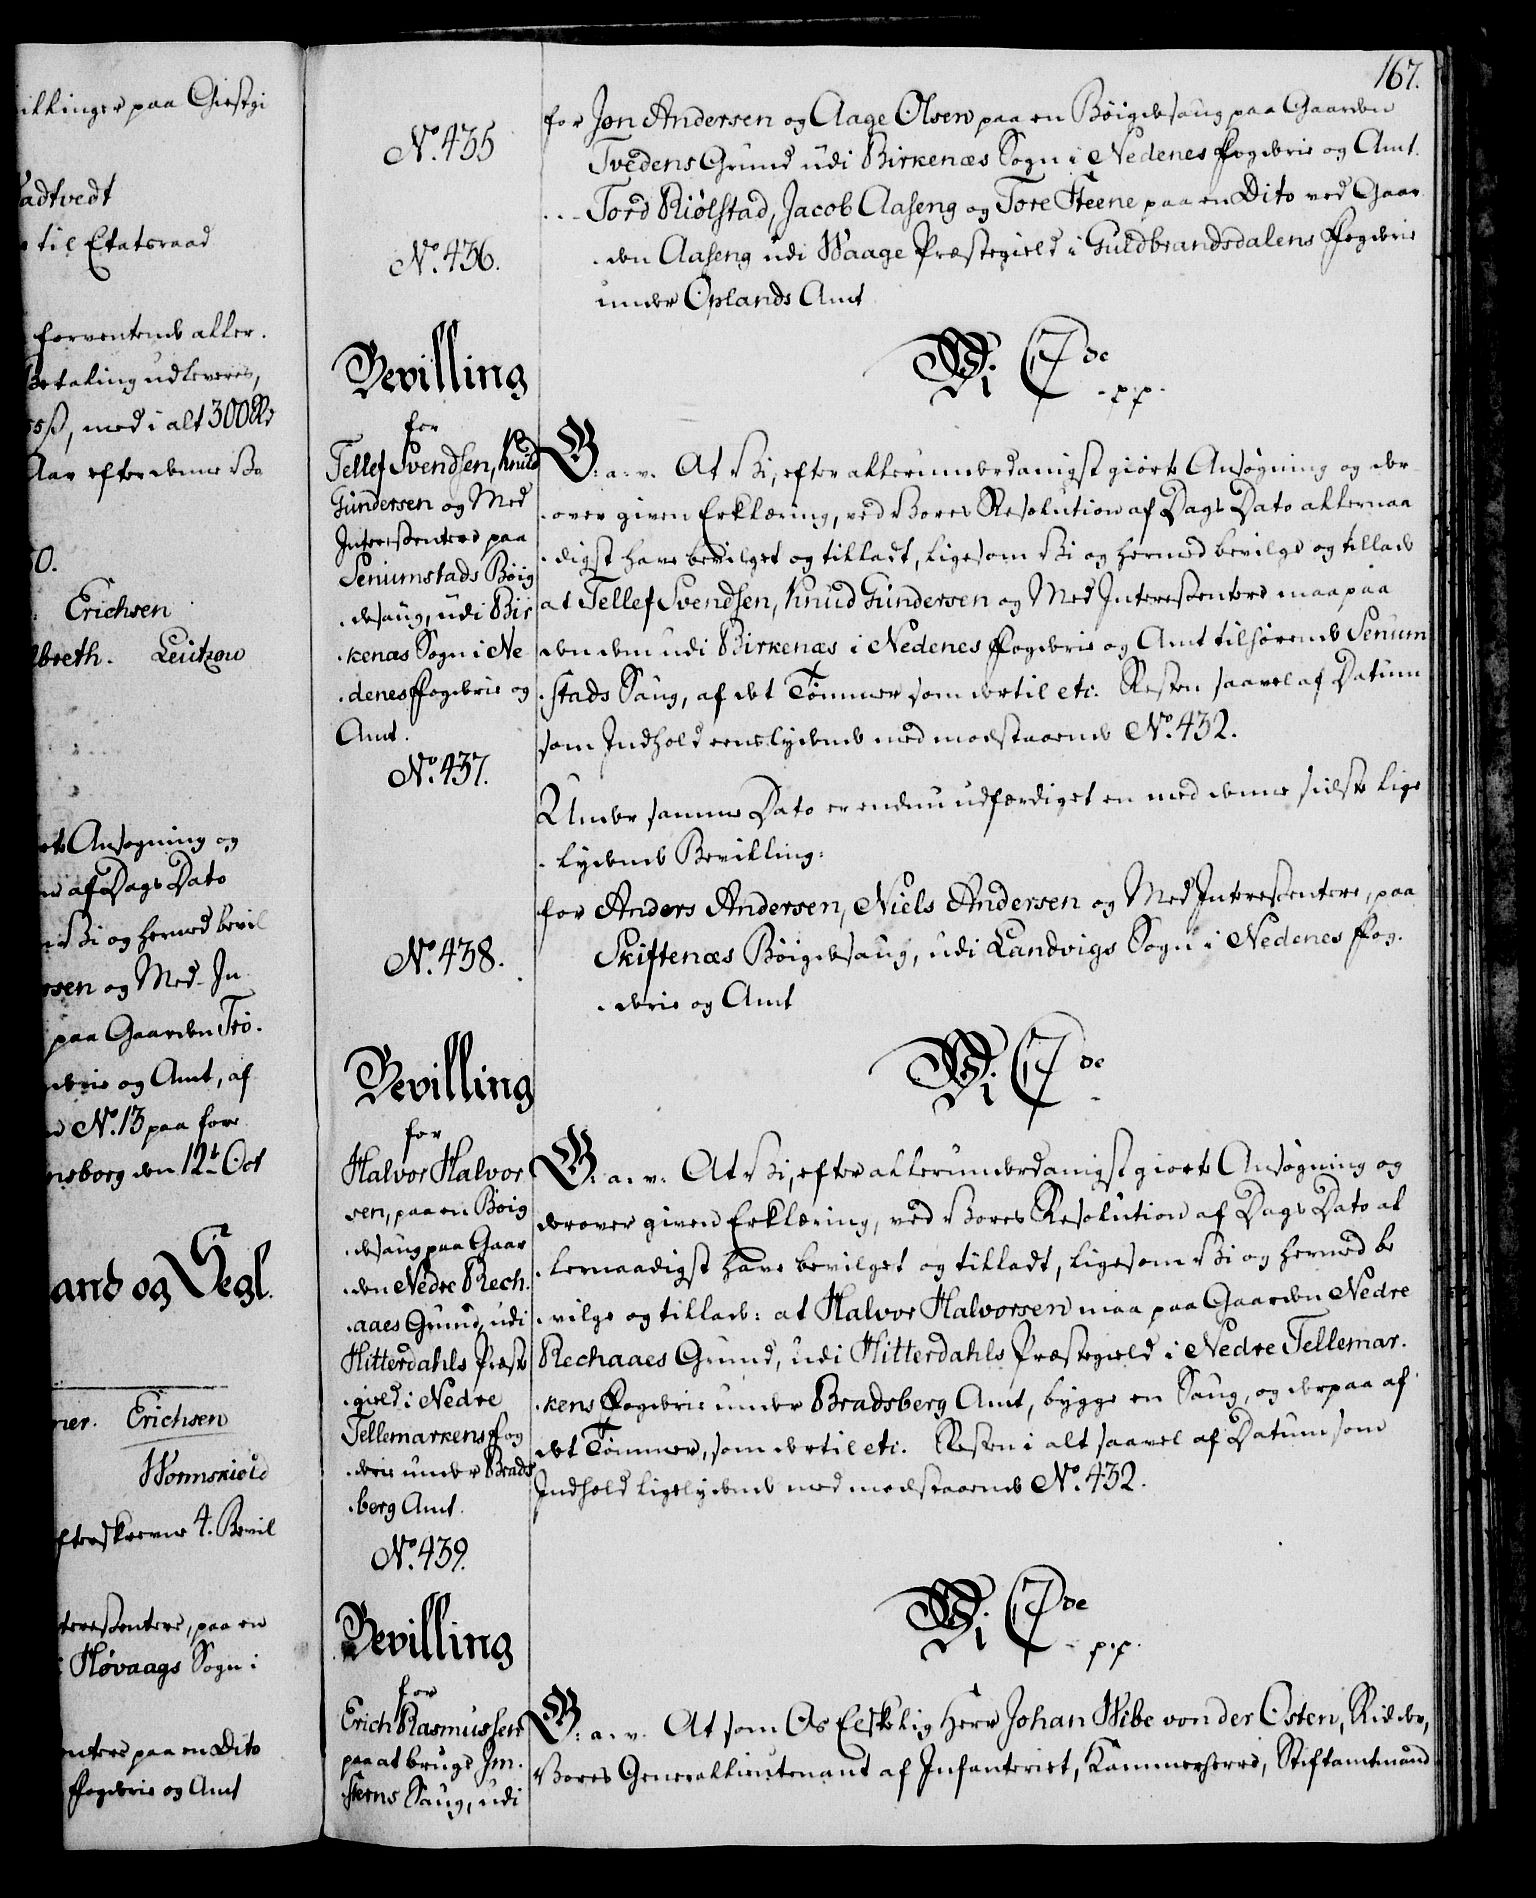 illinger paa Giestgi
adtvedt
til Etatsraad
forventende aller.
betaling udleveres,
med i alt 300 Rd
Aar efter denne Be
50.
Erichsen
lbreth. Leutzow
te Ansøgning og
af Dags Dato
Vi og hermed bevil
rsen og Med-In
paa Gaarden Trö.
derie og Amt, af
No. 13 paa fore
nsborg den 12te Oct
and og Segl.
ner. Erichsen
Wormskiold
fterskrevne 4. Bevil
teressentere, paa en
i Høvaags Sogn i
entere paa en Dito
Fogderie og Amt
167.
No. 435
for Jon Andersen og Aage Olsen paa en Böigdesaug paa Gaarden
Tvedens Grund udi Birkenæs Sogn i Nedenes Fogderie og Amt.
No. 436.
... Tord Riölstad, Jacob Aaseng og Tore Steene paa en Dito ved Gaar
den Aaseng udi Waage Præstegield i Guldbrandsdalens Fogderie
under Oplands Amt
Bevilling
for
Tellef Svendsen, Knud
Gundersen og Med
Interessentere paa
Seniumstads Böig
desaug, udi Bir
kenæs Sogn i Ne
denes Fogderie og
Amt.
No. 437.
Vi C 7de p.p.
G. a. v. At Vi, efter allerunderdanigst giorte Ansøgning og der
over given Erklæring, ved Vores Resolution af Dags Dato allernaa
digst have bevilget og tilladt, ligesom Vi og hermed bevilge og tillade
at Tellef Svendsen, Knud Gundersen og Med Interessentere maa paa
den dem udi Birkenæs i Nedenes Fogderie og Amt tilhørende Senium
stads Saug, af det Tømmer som dertil etc. Resten saavel af Datum
som Indhold eenslydende med modstaaende No. 432.
Under samme Dato er endnu udfærdiget en med denne sidste lige
lydende Bevilling:
No. 438.
for Anders Andersen, Niels Andersen og Med Interessentere, paa
Skiftenæs Böigdesaug, udi Landvigs Sogn i Nedenes Fog.
derie og Amt
Bevilling
for
Halvor Halvor
sen, paa en Böig
desaug paa Gaar
den Nedre Rech.
aaes Grund, udi
Hitterdahls Præste
gield i Nedre
Tellemarkens Fog
derie under Brads
berg Amt.
No. 439.
Vi C 7de
G. a. v. At Vi, efter allerunderdanigst giorte Ansøgning og
derover given Erklæring, ved Vores Resolution af Dags Dato al
lernaadigst have bevilget og tilladt, ligesom Vi og hermed be
vilge og tillade: at Halvor Halvorsen maa paa Gaarden Nedre
Rechaaes Grund, udi Hitterdahls Præstegield i Nedre Tellemar.
kens Fogderie under Bradsberg Amt, bygge en Saug, og derpaa af
det Tømmer, som dertil etc. Resten i alt saavel af Datum som
Indhold ligelydende med modstaaende No. 432.
Bevilling
for
Erich Rasmussen
paa at bruge Jm.
stens Saug, udi
Vi C 7de p.p.
G. a. v. At som Os Elskelig Herr Johan Wibe von der Osten, Ridder,
Vores Generallieutenant af Infanteriet, Kammerherre, Stiftamtmand